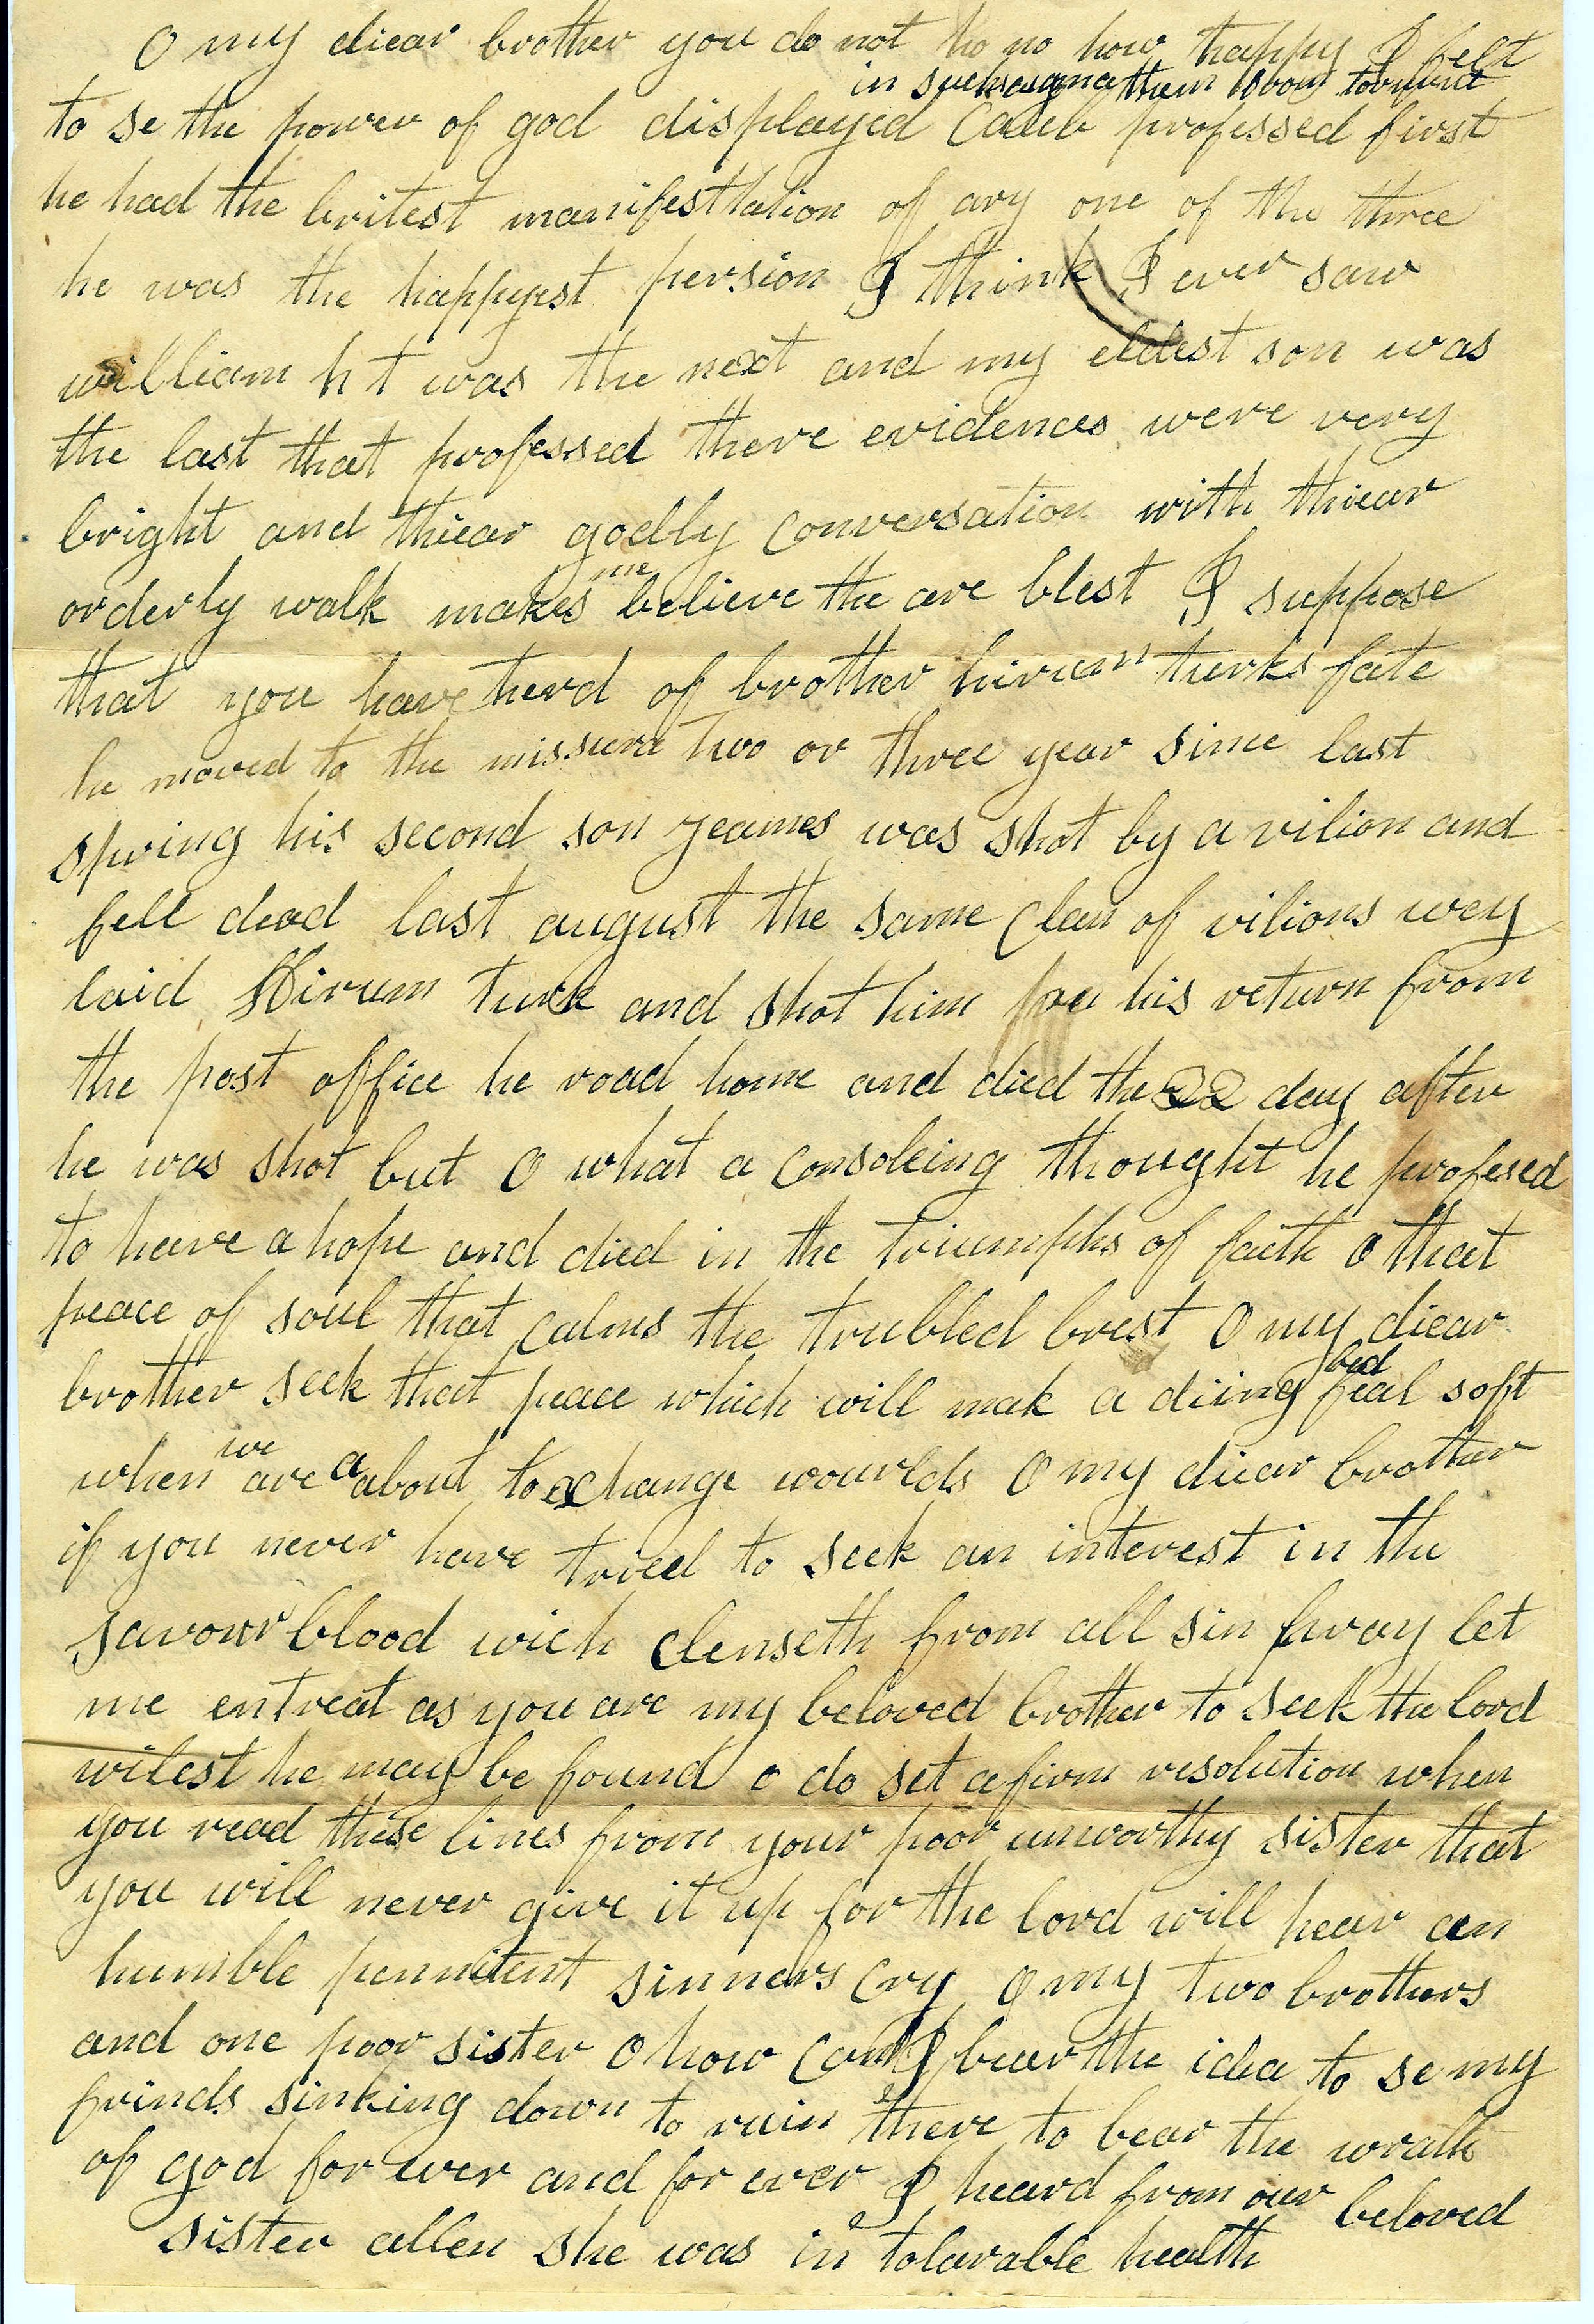 O my diear brother you do not ho no how happy I felt
in such a
to se the power of god displayed Caleb professed first
he had the britest manifesttation of any one of the three
he was the happyest persion I think I ever saw
william h t was the next and my eldest son was
the last that professed there evidences were very
bright and thiear godly conversation with thiear
orderly walk makes me believe the are blest I suppose
that you have herd of brother hirum turks fate
he moved to the missura two or three year since last
spring his second son jeames was shot by a vilion and
fell dead last august the same Clan of vilions wey
laid Hirum turk and shot him his return from
the post office he road home and died the 22 day after
he was shot but O what a consoleing thought he profesed
to have a hope and died in the triumphs of faith O that
peace of soul that calms the trubled brest O my diear
brother seek that peace which will mak a diing bed feal soft
when we are a about to exchange wourlds O my diear brother
if you never have tried to seek an interest in the
savour blood wich clenseth from all sin pray let
me entreat as you are my beloved brother to seek the lord
wilest he may be found o do set a firm resolution when
you read these lines from your poor unworthy sister that
you will never give it up for the lord will hear an
humble pennitent sinners cry O my two brothers
and one poor sister O how can I bear the idea to se my
frinds sinking down to ruin there to bear the wrath
of god for ever and for ever I heard from our beloved
sister allen she was in tolarable health